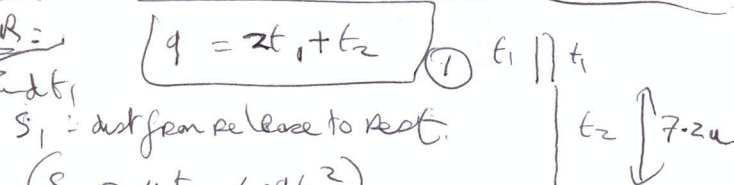 R =
9 = 2t₁ + t₂ ① t₁ t₁
t₁
S₁ = dist from release to rest.
t₂ 7.2u